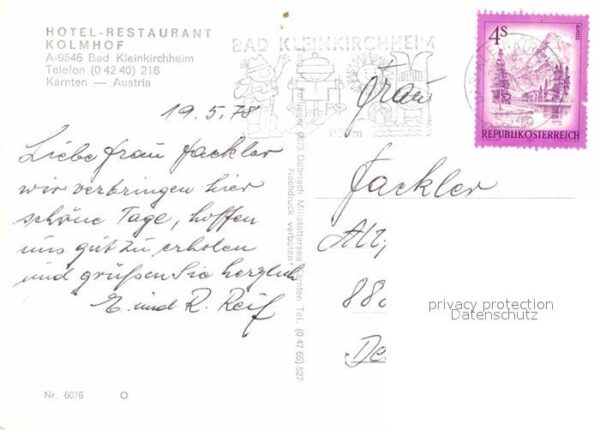 HOTEL-RESTAURANT
KOLMHOF
A-9546 Bad Kleinkirchheim
Telefon (0 42 40) 216
Kärnten — Austria
19.5.78
Liebe Frau Fackler
wir verbringen hier
schöne Tage, hoffen
uns gut zu erholen
und grüßen Sie herzlich
E. und R. Reif
Nr. 6076
9873 Döbriach Millstättersee Kärnten Tel. (0 47 66) 527
Nachdruck verboten
BAD KLEINKIRCHHEIM
4S
REPUBLIK ÖSTERREICH
Frau
Fackler
Alt
880
De
privacy protection
Datenschutz